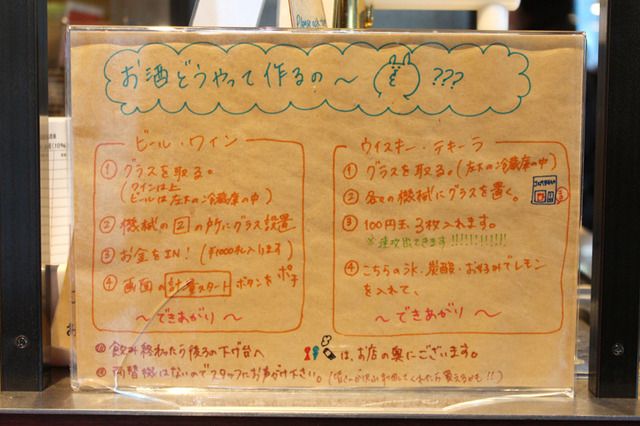 お酒どうやって作るの〜 ???
ビール・ワイン
① グラスを取る。
(ワインは上
ビールは左下の冷蔵庫の中)
② 機械の 2 の所にグラス設置
③ お金をIN! (¥1000札入ります)
④ 画面の 計量スタート ボタンをポチ
〜できあがり〜
ウイスキー・テキーラ
① グラスを取る。(左下の冷蔵庫の中)
② 各々の機械にグラスを置く。
③ 100円玉 3枚入れます。
※連攻出できます!!!!!!!!!!!
④ こちらの氷、炭酸・お好みでレモン
を入れて、
〜できあがり〜
飲み終わったら後ろの下げ台へ
は、お店の奥にございます。
両替機はないのでスタッフにお声がけ下さい。